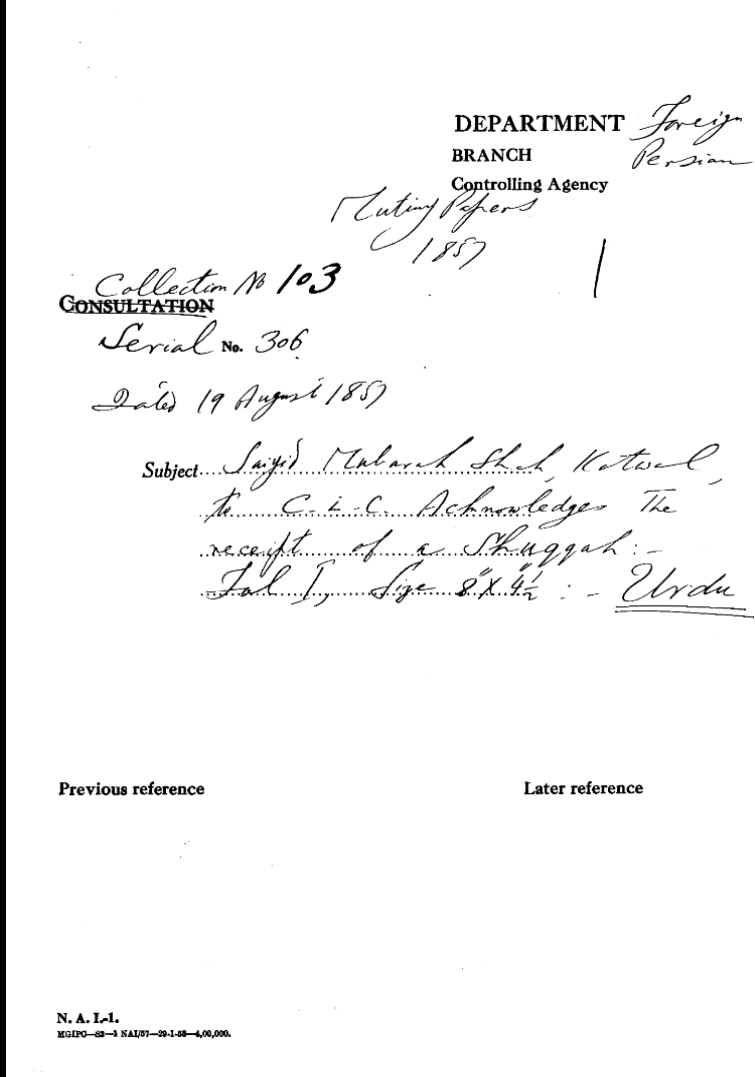 DEPARTMENT Foreign
BRANCH Persian
Controlling Agency
Mutiny Papers
1857
1
Collection No 103
CONSULTATION
Serial No. 306
Dated 19 August 1857
Subject Saiyid Mubarak Shah, Kotwal,
to C-i-C. Acknowledges The
receipt of a Shuqqah:-
Fol I, Size 8"X4"½ :- Urdu
Previous reference Later reference
N. A. I.-1.
MGIPC—S3—1 NAI/57—29-1-58—4,00,000.